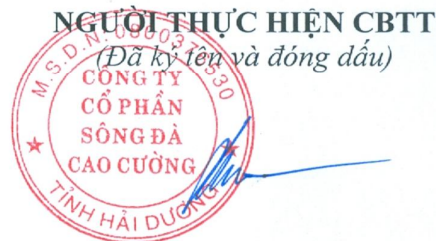 NGƯỜI THỰC HIỆN CBTT
(Đã ký tên và đóng dấu)
M.S.D.N: 0800376530
CÔNG TY
CỔ PHẦN
SÔNG ĐÀ
CAO CƯỜNG
TỈNH HẢI DƯƠNG